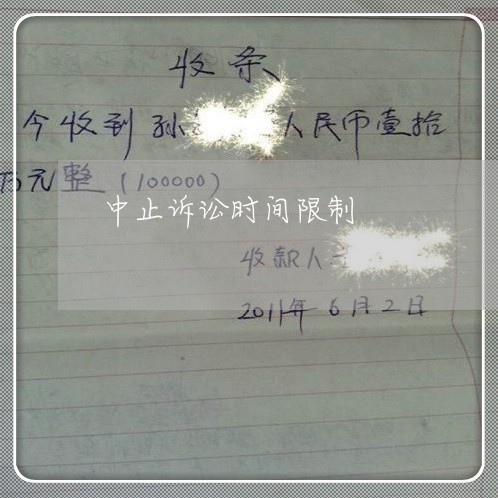 收条
今收到孙 人民币壹拾
万元整（100000）
中止诉讼时间限制
收款人
2011年6月2日